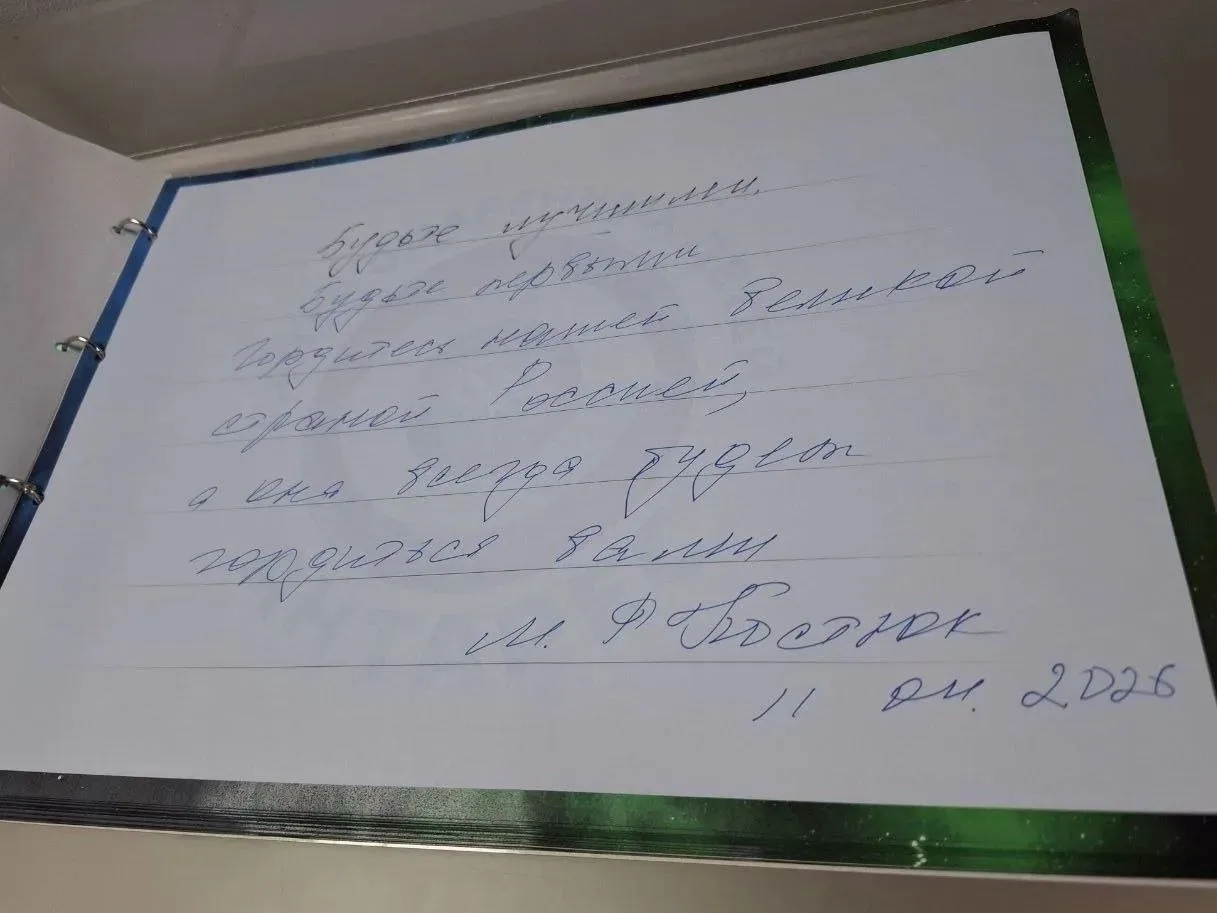 Будьте лучшими.
Будьте первыми
Гордитесь нашей великой
страной Россией,
а она всегда будет
гордиться вами
М. Р Костюк
11 2026